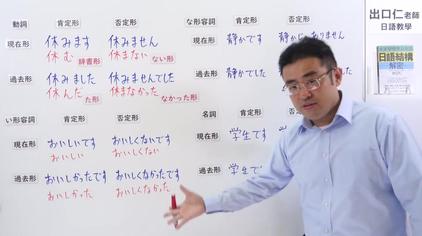 動詞 肯定形 否定形
現在形 休みます 休みません
休む 辞書形 休まない ない形
過去形 休みました 休みませんでした
休んだ た形 休まなかった なかった形
い形容詞 肯定形 否定形
現在形 おいしいです おいしくないです
おいしい おいしくない
過去形 おいしかったです おいしくなかったです
おいしかった おいしくなかった
な形容詞 肯定形 否定形
現在形 静かです
過去形 静かでした
名詞 肯定形
現在形 学生です
過去形 学生で
出口仁老師
日語教學
日語結構
解密